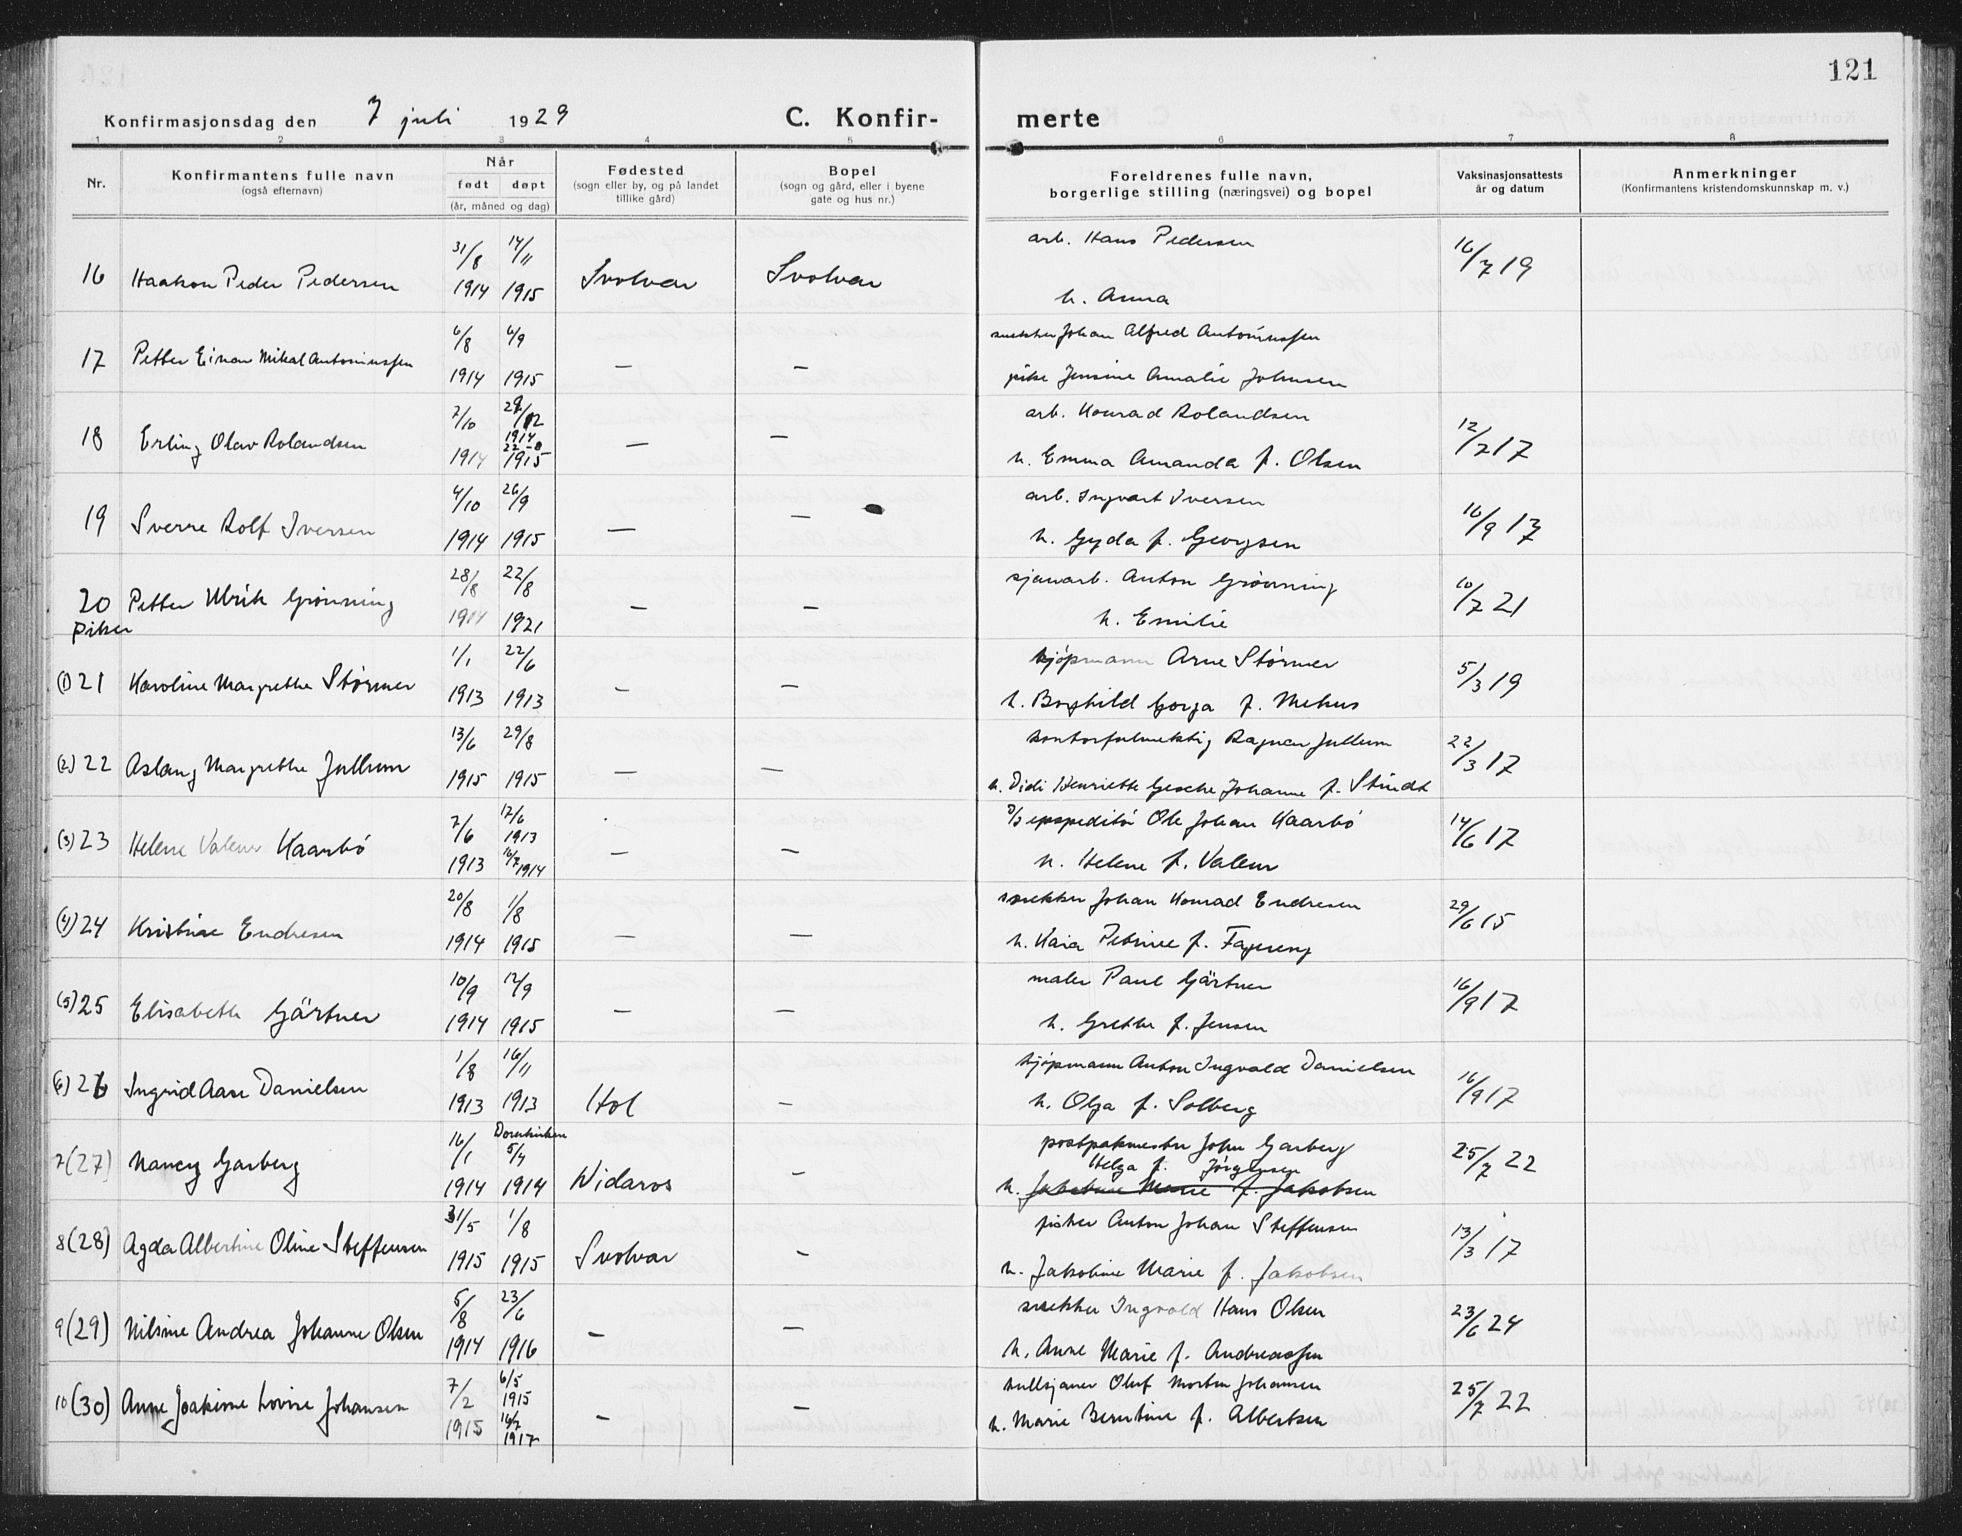 121
Konfirmasjonsdag den 7 juli 1929 C. Konfir- merte
1 2 3 4 5 6 7 8
Nr. Konfirmantens fulle navn (også efternavn) Når født døpt (år, måned og dag) Fødested (sogn eller by, og på landet tillike gård) Bopel (sogn og gård, eller i byene gate og hus nr.) Foreldrenes fulle navn, borgerlige stilling (næringsvei) og bopel Vaksinasjonsattests år og datum Anmerkninger (Konfirmantens kristendomskunnskap m. v.)
31/8 14/11 arb. Hans Pedersen 16/7 19
16 Haakon Peder Pedersen 1914 1915 Svolvær Svolvær h. Anna
6/8 6/9 snekker Johan Alfred Antoniussen
17 Petter Einar Mikal Antoniussen 1914 1915 — — pike Jensine Amalie Johnsen
7/10 arb. Konrad Rolandsen 12/7 17
18 Erling Olav Rolandsen 1914 1914 1915 — — h. Emma Amanda f. Olsen
4/10 26/9 arb. Ingvart Iversen 16/9 17
19 Sverre Rolf Iversen 1914 1915 — — h. Gyda f. Georgsen
28/8 22/8 sjauarb. Anton Grønning 10/7 21
20 Petter Ulrik Grønning 1914 1921 — — h. Emilie
Piker
1/1 22/6 kjøpmann Arne Størmer 5/3 19
(1) 21 Karoline Margrethe Størmer 1913 1913 — — h. Borghild Gorga f. Mehus
13/6 29/8 kontorfulmektig Ragnar Jullum 22/3 17
(2) 22 Aslaug Margrethe Jullum 1915 1915 — — h. Didi Henriette Gesche Johanne f. Stindt
7/6 17/6 1913 D/S expeditør Ole Johan Kaarbø 14/6 17
(3) 23 Helene Valeur Kaarbø 1913 16/7 1914 — — h. Helene f. Valeur
20/8 1/8 snekker Johan Konrad Endresen 29/6 15
(4) 24 Kristine Endresen 1914 1915 — — h. Kaia Petrine f. Fagereng
10/9 12/9 maler Paul Gärtner 16/9 17
(5) 25 Elisabeth Gärtner 1914 1915 — — h. Grethe f. Jensen
1/8 16/11 kjøpmann Anton Ingvald Danielsen 16/9 17
(6) 26 Ingrid Aase Danielsen 1913 1913 Hol — h. Olga f. Solberg
16/1 Domkirken 5/4 postpakmester John Garberg 25/7 22
7 (27) Nancy Garberg 1914 1914 Nidaros — Helga f. Jørgensen
h. Jakobine Marie f. Jakobsen
31/5 1/8 fisker Anton Johan Steffensen 13/3 17
8 (28) Agda Albertine Oline Steffensen 1915 1915 Svolvær — h. Jakobine Marie f. Jakobsen
5/8 23/6 snekker Ingvald Hans Olsen 23/6 24
9 (29) Nilsine Andrea Johanne Olsen 1914 1916 — — h. Anne Marie f. Andreassen
7/2 6/5 1915 Oluf Morten Johansen 25/7 22
10 (30) Anne Joakime Lovise Johansen 1915 16/7 1917 — — h. Marie Berntine f. Albertsen